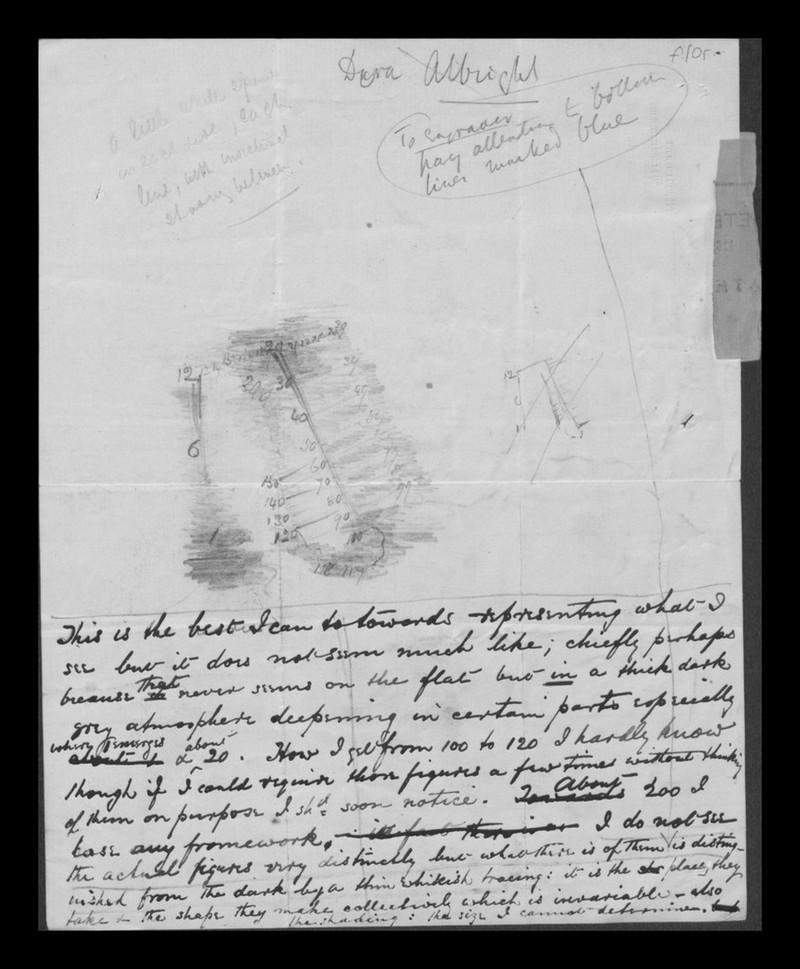 f/or.
Dora Albright
A little white space
on each side, each
line, with
between.
To Engraver
pay attention to bottom
lines marked blue
12
6
1
20
29
30
39
290
40
49
50
60
70
80
90
100
150
140
130
120
99
12
1
This is the best I can to towards representing what I
see but it does not seem much like; chiefly perhaps
because that never seems on the flat but in a thick dark
grey atmosphere deepening in certain parts especially
where 1 emerges
about 1 & about 20. How I get from 100 to 120 I hardly know
though if I could require those figures a few times without thinking
of them on purpose I shd soon notice. Towards About 200 I
lose any framework, I do not see
the actual figures very distinctly but what there is of them is disting-
uished from the dark by a thin whitish tracing: it is the place they
take & the shape they make collectively which is invariable - also
the shading: the size I cannot determine.